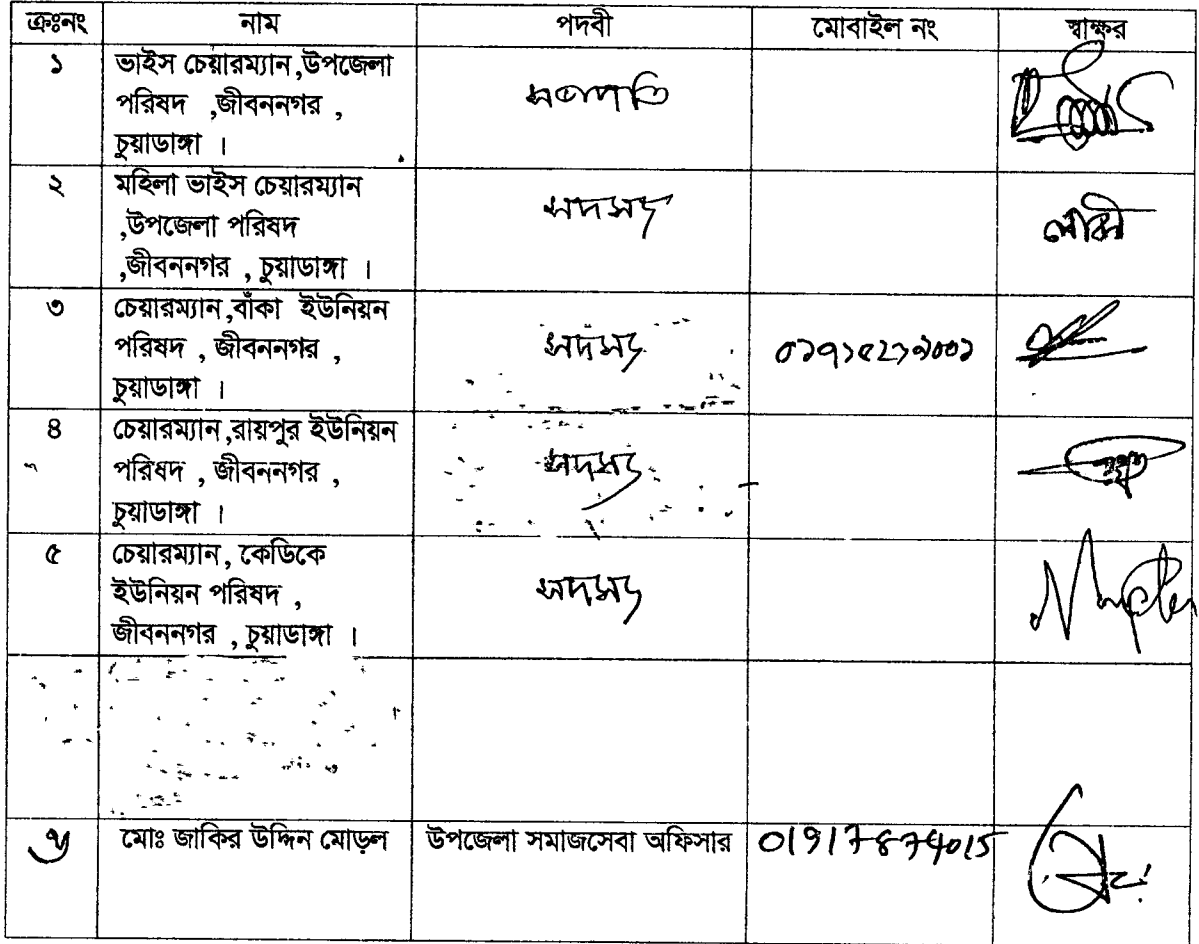 ক্রঃনং নাম পদবী মোবাইল নং স্বাক্ষর
১ ভাইস চেয়ারম্যান,উপজেলা
পরিষদ ,জীবননগর ,
চুয়াডাঙ্গা ।
সভাপতি
২ মহিলা ভাইস চেয়ারম্যান
,উপজেলা পরিষদ
,জীবননগর , চুয়াডাঙ্গা ।
সদস্য
৩ চেয়ারম্যান,বাঁকা ইউনিয়ন
পরিষদ , জীবননগর ,
চুয়াডাঙ্গা ।
সদস্য
৪ চেয়ারম্যান,রায়পুর ইউনিয়ন
পরিষদ , জীবননগর ,
চুয়াডাঙ্গা ।
সদস্য
৫ চেয়ারম্যান, কেডিকে
ইউনিয়ন পরিষদ ,
জীবননগর , চুয়াডাঙ্গা ।
সদস্য
৬ মোঃ জাকির উদ্দিন মোড়ল উপজেলা সমাজসেবা অফিসার 01917874015